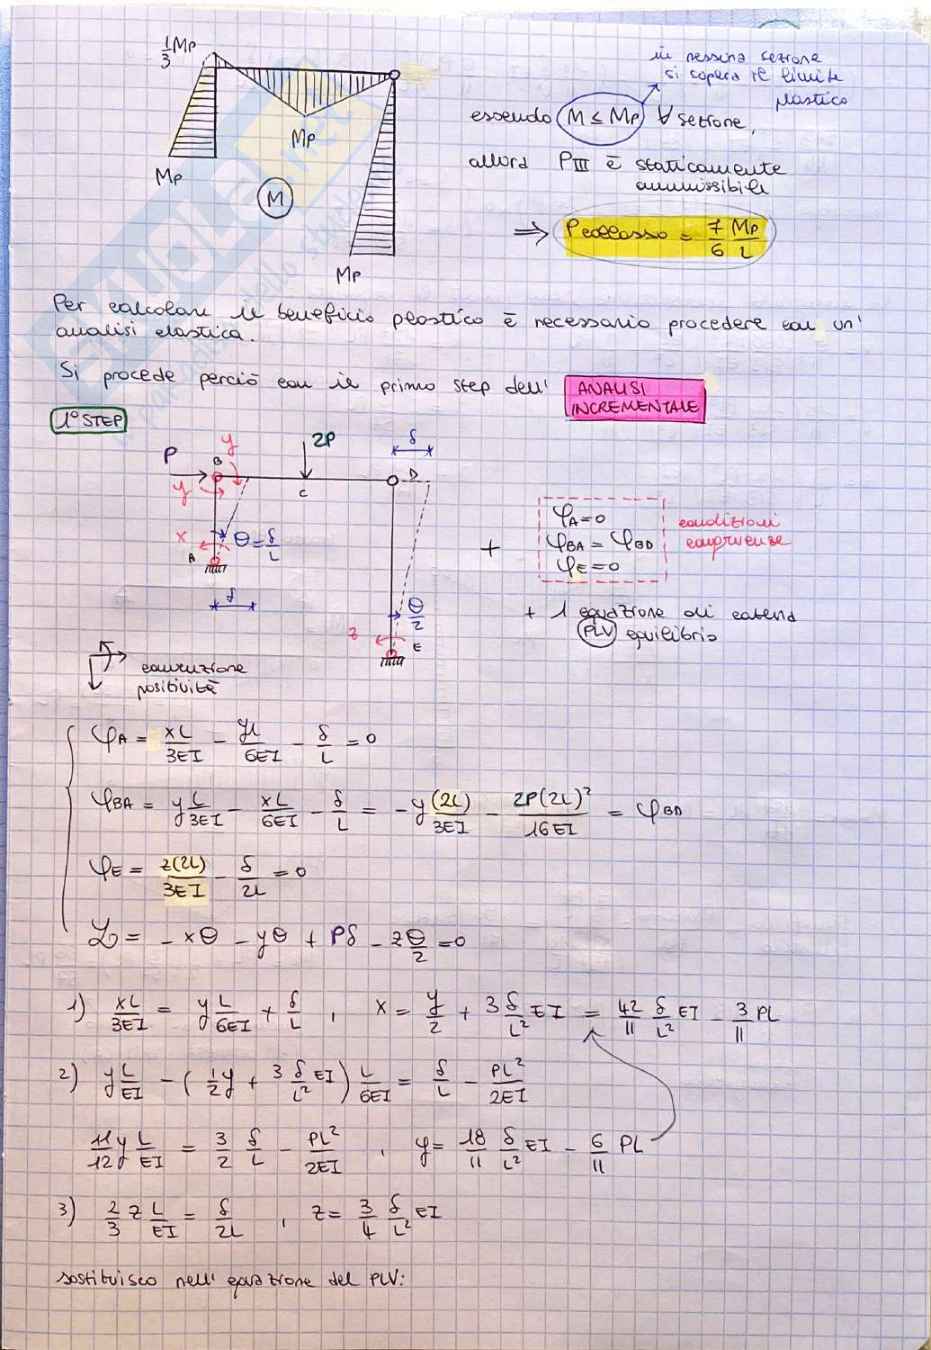 1/3 Mp
Mp
Mp
M
Mp
in nessuna sezione
si supera il limite
plastico
essendo M ≤ Mp ∀ sezione,
allora PIII è staticamente
ammissibile
⇒ Pcollasso = 7/6 Mp/L
Per calcolare il beneficio plastico è necessario procedere con un'
analisi elastica.
Si procede perciò con il primo step dell' ANALISI
INCREMENTALE
1° STEP
P
B
y
y
2P
C
δ
D
x
A
θ = δ/L
δ
θ/2
z
E
+
φA = 0
φBA = φBD
φE = 0
condizioni
congruenze
+ 1 equazione di catena
PLV equilibrio
convenzione
positività
φA = xL/3EI - yL/6EI - δ/L = 0
φBA = y L/3EI - xL/6EI - δ/L = -y (2L)/3EI - 2P(2L)²/16EI = φBD
φE = z(2L)/3EI - δ/2L = 0
L = - xθ - yθ + Pδ - z θ/2 = 0
1) xL/3EI = y L/6EI + δ/L , x = y/2 + 3 δ/L² EI = 42/11 δ/L² EI - 3/11 PL
2) y L/EI - (1/2 y + 3 δ/L² EI) L/6EI = δ/L - PL²/2EI
11/12 y L/EI = 3/2 δ/L - PL²/2EI , y = 18/11 δ/L² EI - 6/11 PL
3) 2/3 z L/EI = δ/2L , z = 3/4 δ/L² EI
sostituisco nell' equazione del PLV: